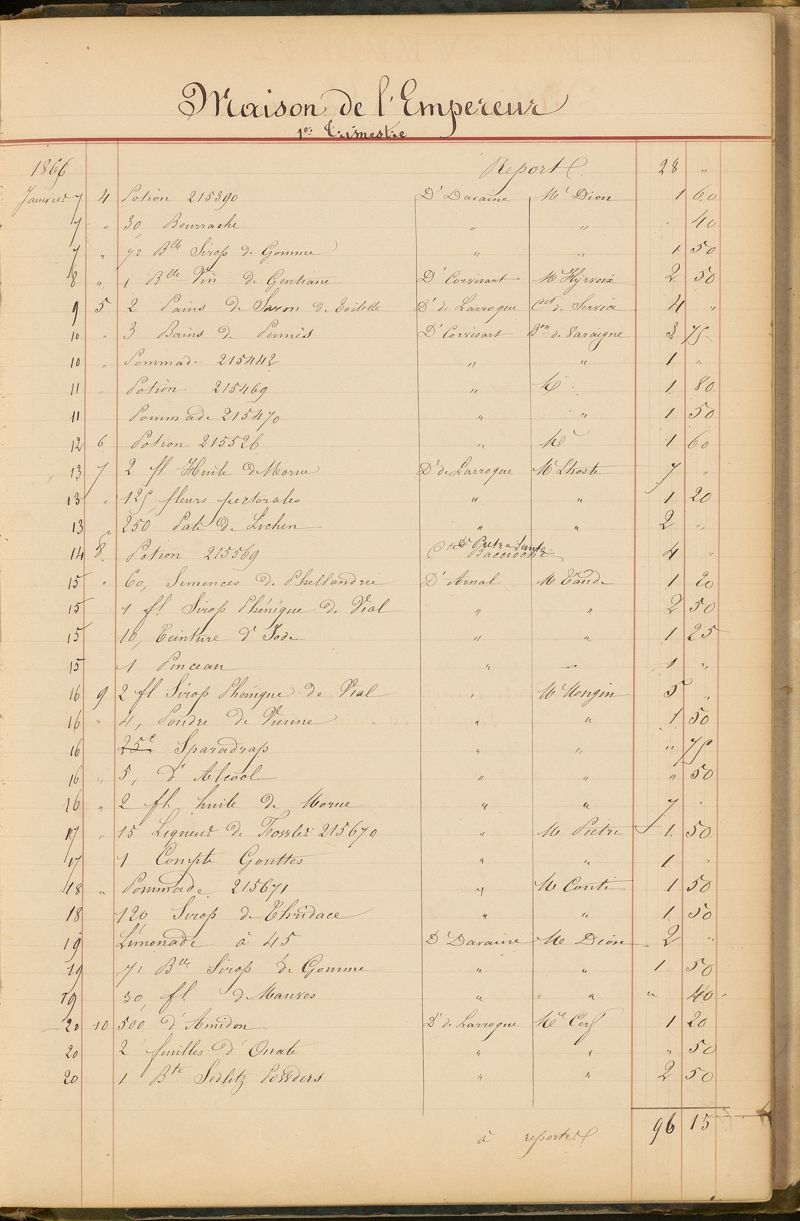 Maison de l'Empereur
1er Trimestre
1866 Report 28 "
Janvier 7 4 Potion 215390 Dr Daraine Mr Dion 1 60
7 " 30, Bourrache " " 40
7 " 1/2 Blle Sirop de Gomme " " 1 50
8 " 1 Blle Vin de Gentiane Dr Corvisart Mr Hyrvoix 2 50
9 5 2 Pains de Savon de Toilette Dr de Larroque de Service 4 "
10 " 3 Bains de Pennès Dr Corvisart Bon de 3 75
10 " Pommade 215442 " " 1 "
11 " Potion 215469 " M. 1 80
11 Pommade 215470 " " 1 50
12 6 Potion 215526 " Mr 1 60
13 7 2 fl Huile de Morue Dr de Larroque Mr Lhoste 7 "
13 " 125, fleurs pectorales " " 1 20
13 " 250 Pate de Lichen " " 2 "
14 8 Potion 215569 Dr Pietra Santa Bacciochi 4 "
15 " 60, Semences de Phellandrie Dr Arnal 1 20
15 1 fl Sirop Phénique de Vial " " 2 50
15 10, Teinture d'Iode " " 1 25
15 1 Pinceau " " 1 "
16 9 2 fl Sirop Phénique de Vial " Mr Mongin 5 "
16 " 4, Poudre de Vienne " " 1 50
16 25c Sparadrap " " " 75
16 " 5, d'Alcool " " " 50
16 " 2 fl. huile de Morue " " 7 "
17 " 15 Liqueur de 215670 " Mr Pietri 1 50
17 1 Compte Gouttes " " 1 "
18 " Pommade 215671 " Mr Conti 1 50
18 120 Sirop de Thridace " " 1 50
19 Limonade à 45 Dr Daraine Mr Dion 2 "
19 1/2 Blle Sirop de Gomme " " 1 50
19 30, fl de Mauves " " " 40
20 10 500, d'Amidon Dr de Larroque Mr Cerf 1 20
20 2 feuilles d'Ouate " " " 50
20 1 Bte Sedlitz Powders " " 2 50
à reporter 96 15